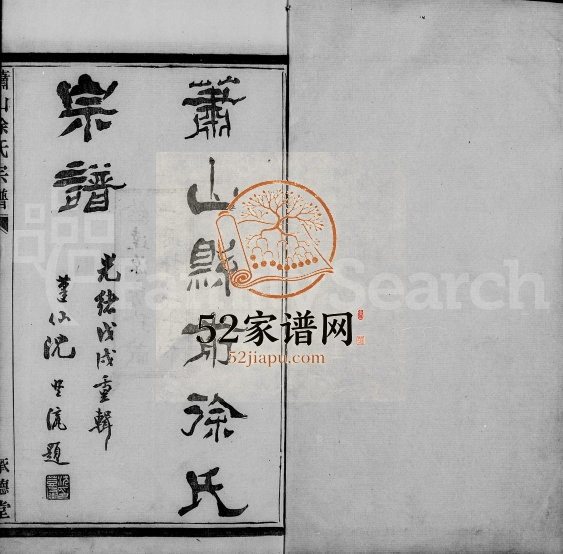 蕭山縣前徐氏
宗譜
光緒戊戌重輯
蕭山徐氏宗譜
承德堂
FamilySearch
52家谱网
52jiapu.com